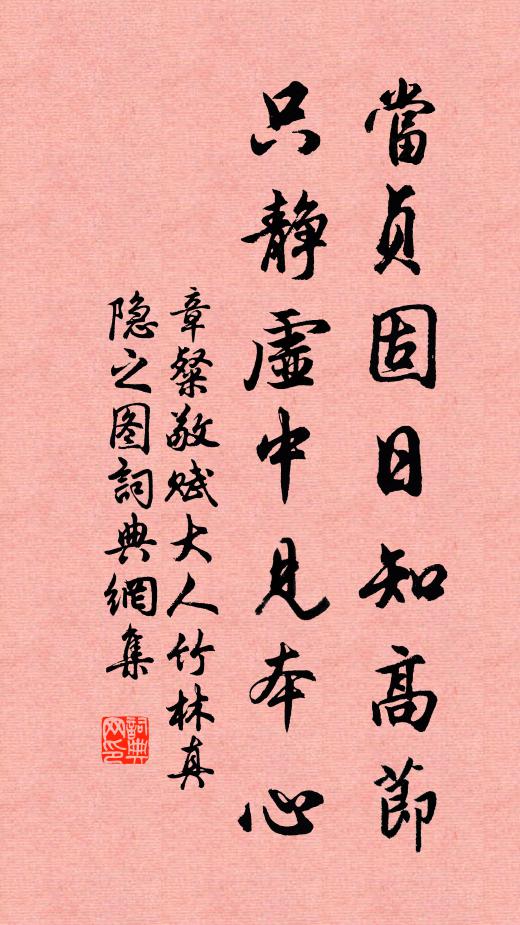 當貞固日知高節
只靜虛中見本心
章粲敬賦大人竹林真
隐之图詞典網集
詞典网印